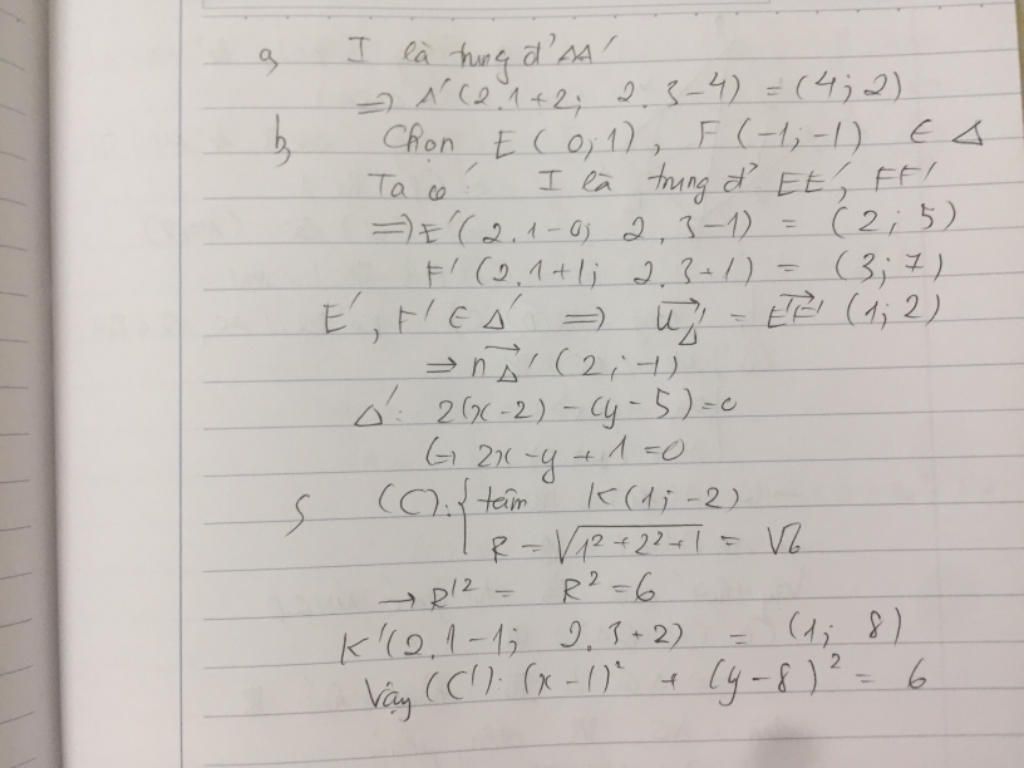 a, I là trung đ' AA'
=> A'(2.1+2; 2.3-4) = (4; 2)
b, Chọn E(0;1), F(-1;-1) ∈ Δ
Ta có: I là trung đ' EE', FF'
=> E'(2.1-0; 2.3-1) = (2; 5)
F'(2.1+1; 2.3+1) = (3; 7)
E', F' ∈ Δ' => \vec{u_{Δ'}} = \vec{E'F'} (1; 2)
=> \vec{n_{Δ'}} (2; -1)
Δ': 2(x-2) - (y-5) = 0
<-> 2x - y + 1 = 0
c, (C): { tâm K(1; -2)
R = √(1² + 2² + 1) = √6
→ R'² = R² = 6
K'(2.1-1; 2.3+2) = (1; 8)
Vậy (C'): (x-1)² + (y-8)² = 6